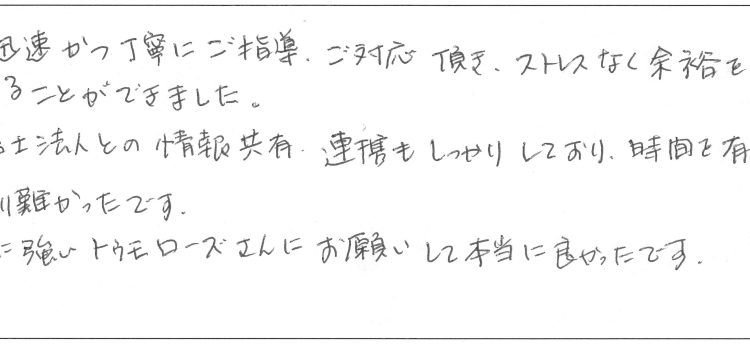 迅速かつ丁寧にご指導、ご対応頂き、ストレスなく余裕を
ることができました。
士法人との情報共有、連携もしっかりしており、時間を有
り難かったです。
に強いトゥモローズさんにお願いして本当に良かったです。